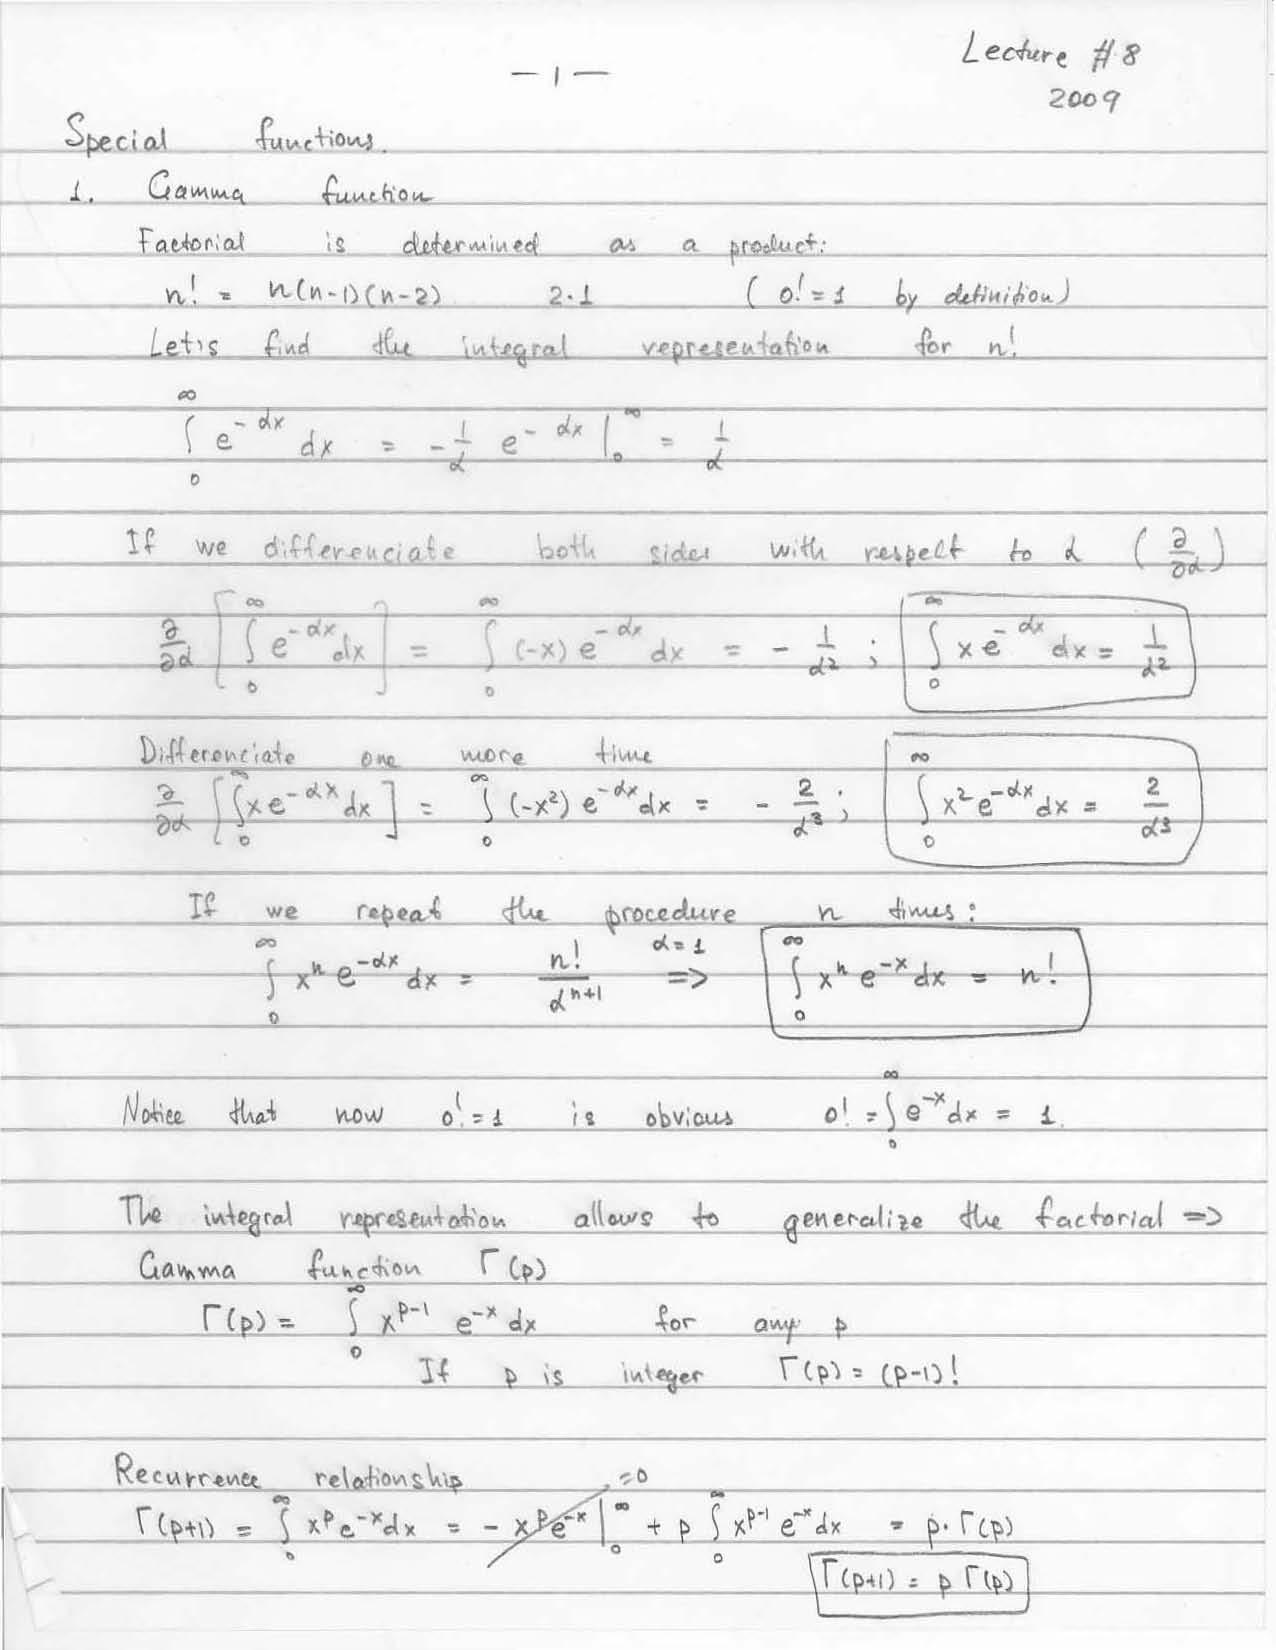 Lecture # 8
- 1 -
2009
Special functions.
1. Gamma function
Factorial is determined as a product:
n! = n(n-1)(n-2) 2·1 ( 0! = 1 by definition)
Let's find the integral representation for n!
∫₀^∞ e^{-αx} dx = -1/α e^{-αx} |₀^∞ = 1/α
If we differenciate both sides with respect to α (∂/∂α)
∂/∂α [∫₀^∞ e^{-αx} dx] = ∫₀^∞ (-x) e^{-αx} dx = - 1/α² ; ∫₀^∞ x e^{-αx} dx = 1/α²
Differenciate one more time
∂/∂α [∫₀^∞ x e^{-αx} dx] = ∫₀^∞ (-x²) e^{-αx} dx = - 2/α³ ; ∫₀^∞ x² e^{-αx} dx = 2/α³
If we repeat the procedure n times:
∫₀^∞ xⁿ e^{-αx} dx = n!/α^{n+1} α=1 => ∫₀^∞ xⁿ e^{-x} dx = n!
Notice that now 0! = 1 is obvious 0! = ∫₀^∞ e^{-x} dx = 1.
The integral representation allows to generalize the factorial =>
Gamma function Γ(p)
Γ(p) = ∫₀^∞ x^{p-1} e^{-x} dx for any p
If p is integer Γ(p) = (p-1)!
Recurrence relationship
Γ(p+1) = ∫₀^∞ x^p e^{-x} dx = - x^p e^{-x} |₀^∞ =0 + p ∫₀^∞ x^{p-1} e^{-x} dx = p·Γ(p)
Γ(p+1) = p Γ(p)